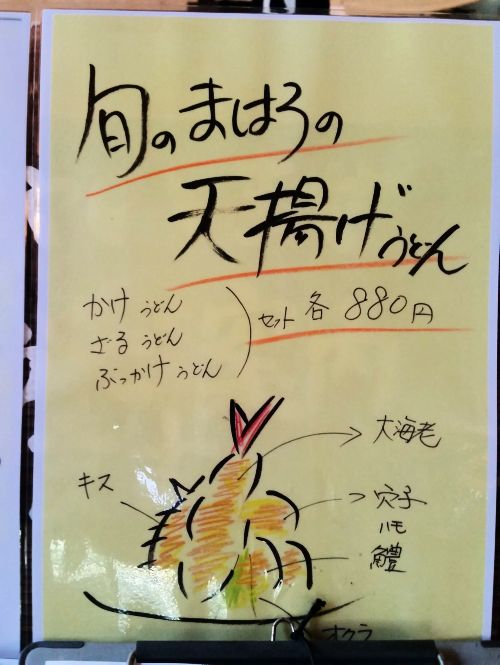 旬のまほろの
天揚げうどん
かけうどん
ざるうどん
ぶっかけうどん
セット各880円
大海老
キス
穴子
ハモ
鱧
オクラ